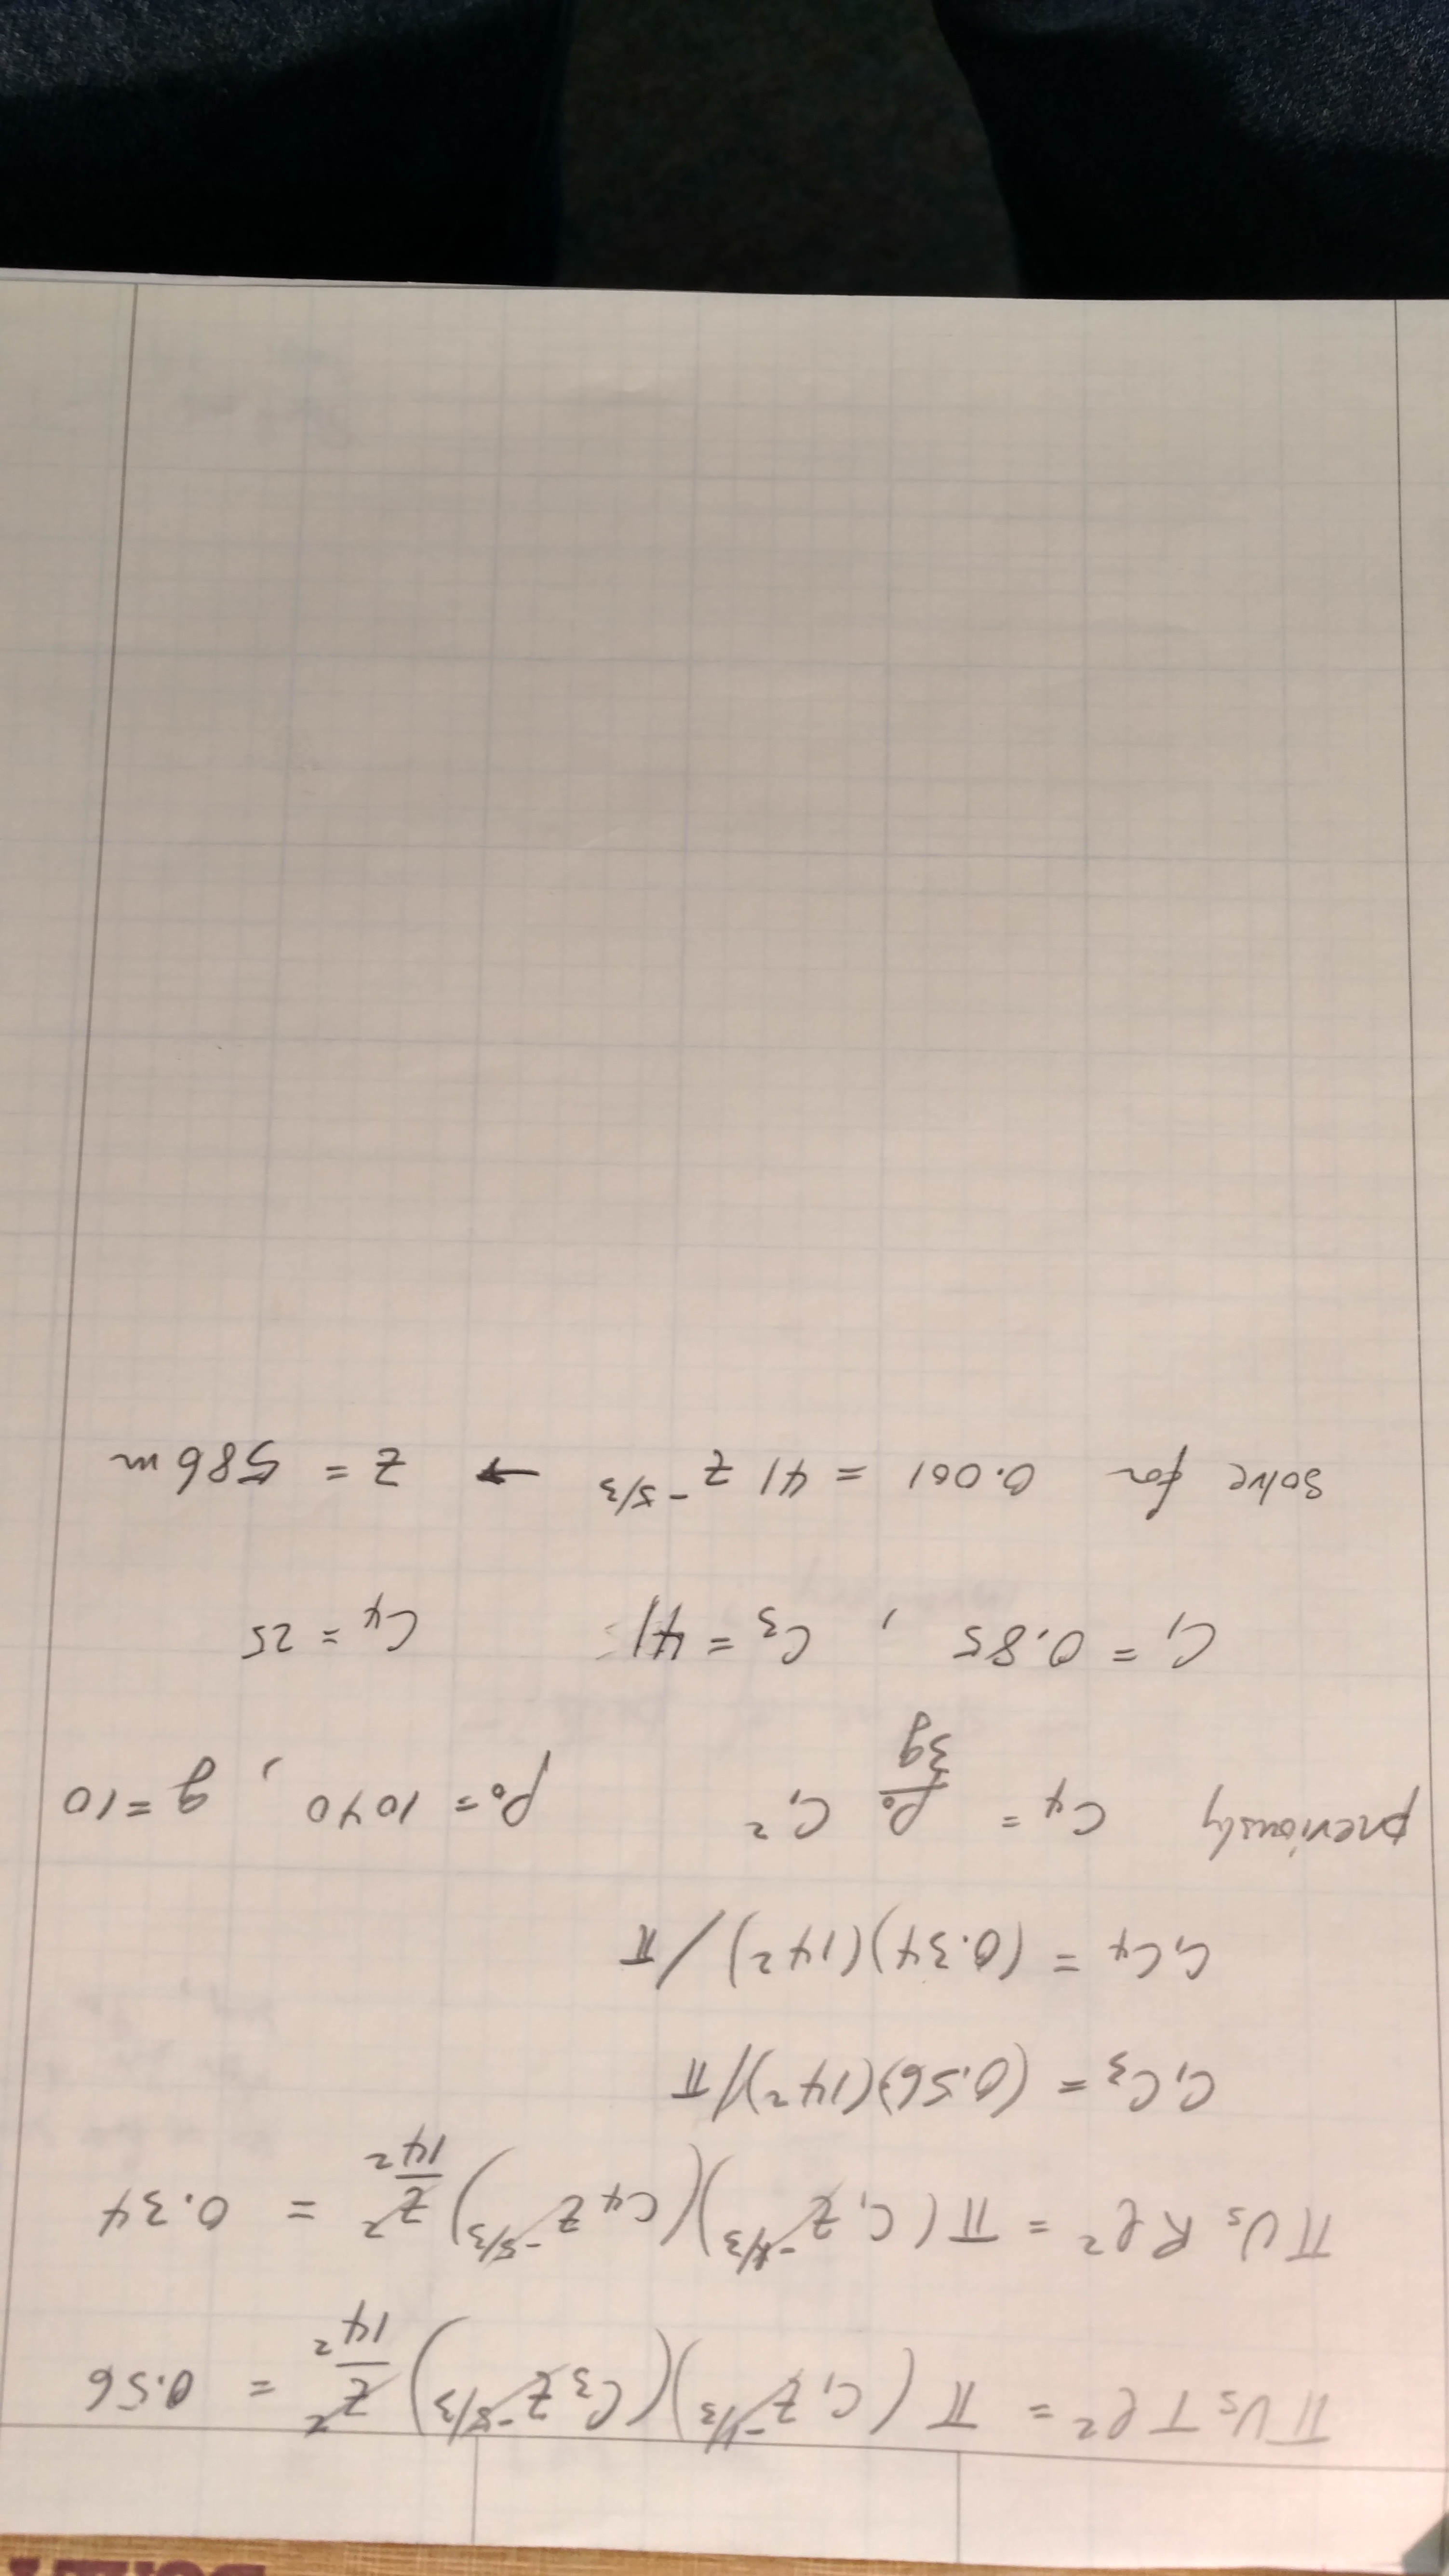 π U_s T ℓ² = π (C₁ z^{-1/3})(C₃ z^{-5/3}) z²/14² = 0.56
π U_s R ℓ² = π (C₁ z^{-1/3})(C₄ z^{-5/3}) z²/14² = 0.34
C₁C₃ = (0.56)(14²)/π
C₁C₄ = (0.34)(14²)/π
previously C₄ = ρ₀/3g C₁² ρ₀ = 1040, g = 10
C₁ = 0.85, C₃ = 41 C₄ = 25
solve for 0.001 = 41 z^{-5/3} → z = 586 m